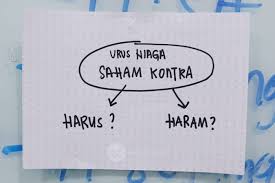 URUS NIAGA
SAHAM KONTRA
HARUS?
HARAM?